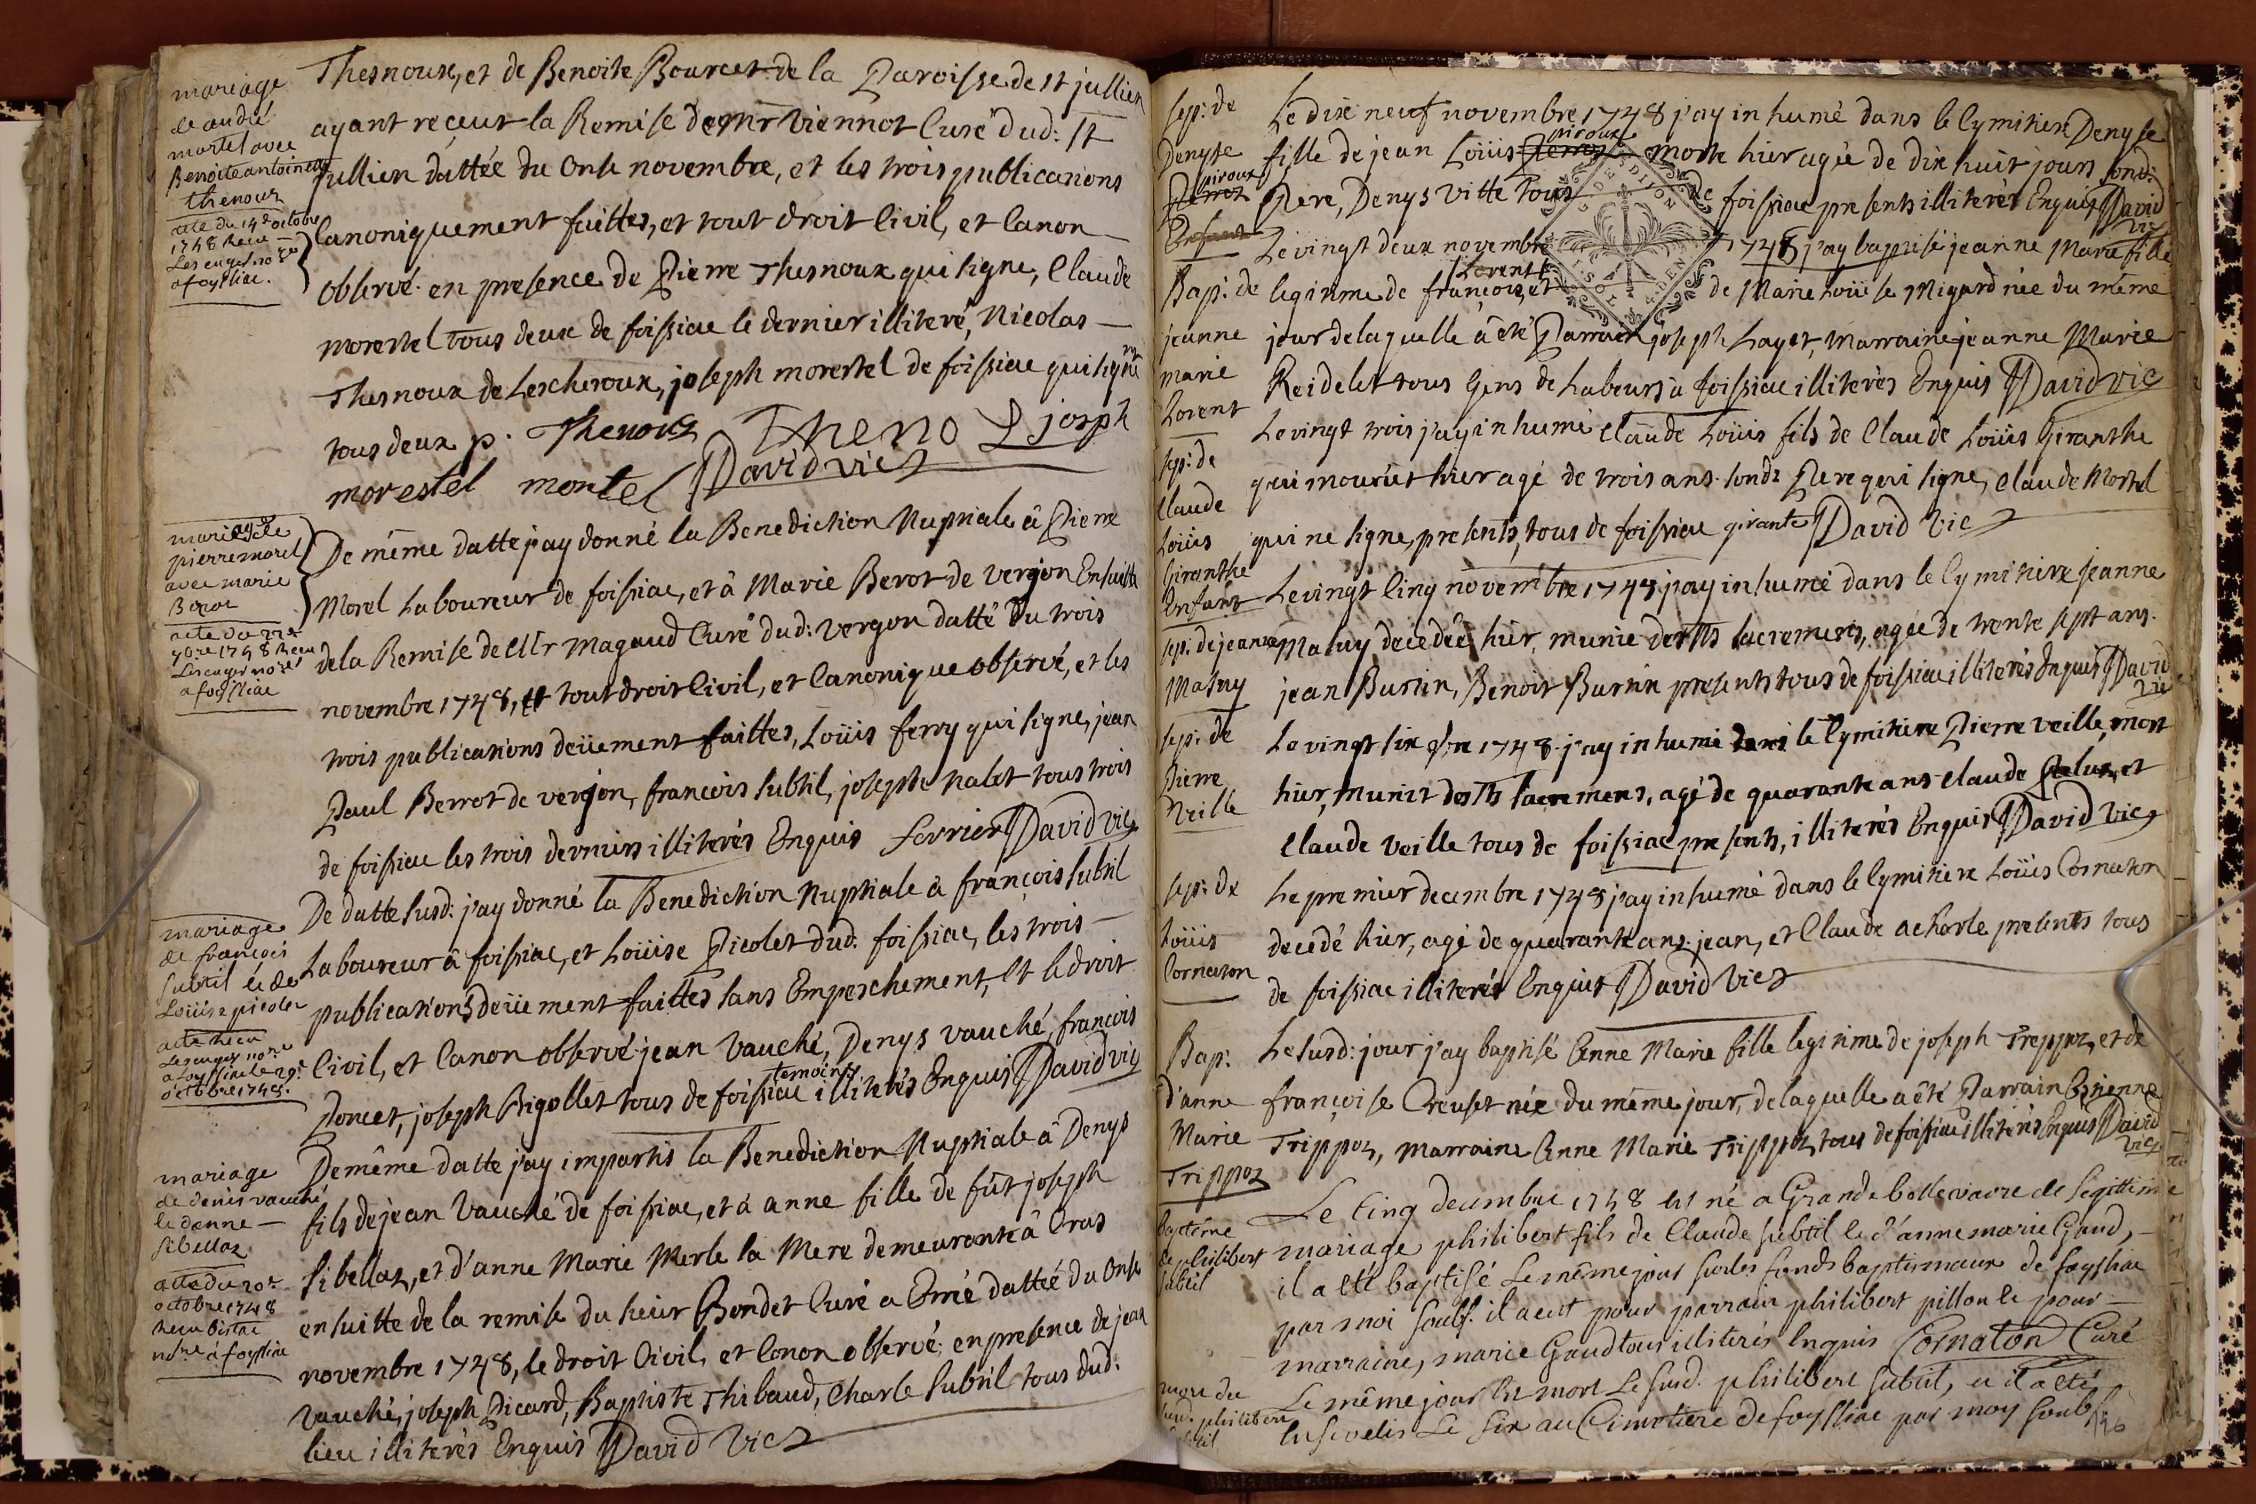 mariage
de andré
mortel avec
Benoite antoinette
thenour
acte du 14e octobre
1748 Receu
à foyssiac.
Thesnoux, et de Benoite Bourcet de la Paroisse de St jullien
ayant reçeut la Remise de mr Viennot Curé dud: St
jullien dattée du Onse novembre, et les trois publications
Canoniquement faittes, et tout droit Civil, et Canon
Observé. en presence de Pierre Thesnoux qui signe, Claude
morestel tous deux de foissiac le dernier illiteré, Nicolas
Thesnoux de Lescheroux, joseph morestel de foissiac qui signent
tous deux p. Thenoux Theno J josph
morestel mortel David vic
mariage de
pierre morel
avec marie
Beror
acte du
9bre 1748 Receu
a foyssiac
De même datte j'ay donné la Benediction Nuptiale â Pierre
Morel Laboureur de foissiac, et â Marie Berot de vergon Ensuitte
de la Remise de Mr Magaud Curé dud: vergon datté du trois
novembre 1748, et tout droit Civil, et Canonique observé, et les
trois publications deüement faittes, Loüis ferry qui signe, jean
Paul Berrot de vergon, francois subtil, josephe Nalet tous trois
de foissiac les trois derniers illiterés Enquis ferrier David vic
mariage
de francois
subtil & de
Loüise picolet
acte Receu
a foyssiac le 29e
octobre 1748.
De datte susd: j'ay donné la Benediction Nuptiale â françois subtil
Laboureur â foissiac, et Loüise Picolet dud. foissiac, les trois
publications deüement faittes sans Empeschement, Et le droit
Civil, et Canon observé jean Vauché, Denys vauché, francois
Poncet, joseph Rigollet tous de foissiac temoins illiterés Enquis David vic
mariage
de denis vauché
& danne
sibellaz
acte du 20e
octobre 1748
Receu
nore à foyssiac
De même datte j'ay impartis la Benediction Nuptiale â Denys
fils de jean Vauché de foissiac, et à anne fille de fût joseph
sibellaz, et d'anne Marie Merle la Mere demeurante â Cras
ensuitte de la remise du sieur Bondet Curé a Emé dattée du Onse
novembre 1748, le droit Civil, et Canon observé; en presence de jean
Vauché, joseph Picard, Baptiste Thibaud, Charle subtil tous dud:
lieu illiterés Enquis David Vic
sep: de
Denyse
piroux
Enfant
Le dix neuf novembre 1748 j'ay inhumé dans le Cymitiere Denyse
fille de jean Loüis piroux morte hier agée de dix huit jours sond:
Pere, Denys vitte tous de foissiac presents illiterés Enquis David
vic
Bap: de
jeanne
marie
Lorent
Le vingt deux novembre 1748 j'ay baptisé jeanne Marie fille
legitime de francois Lorent, et de Marie Loüise Migard née du même
jour de laquelle â été Parrain joseph Layet, marraine jeanne Marie
Reidelet tous Gens de Labeurs a foissiac illiterés Enquis David vic
sep: de
Claude
Loüis
Giranthe
Enfant
Le vingt trois j'ay inhumé Claude Loüis fils de Claude Loüis Giranthe
qui mourut hier agé de trois ans. sond: Pere qui signe, Claude Mortel
qui ne signe, presents, tous de foissiac girante David Vic
sep: de jeanne
Mathy
Le vingt Cinq novembre 1748 j'ay inhumé dans le Cymitiere Jeanne
Mathy decedée hier, munie des Sts sacremens, agée de trente sept ans.
jean Burtin, Benoit Burtin presents tous de foissiac illiterés Enquis David
vic
sep: de
Pierre
Veille
Le vingt six 9bre 1748. j'ay inhumé dans le Cymitiere Pierre veille, mort
hier, munit des Sts sacremens, agé de quarante ans. Claude Pelus, et
Claude veille tous de foissiac presents, illiterés Enquis David vic
sep: de
Loüis
Cornaton
Le premier decembre 1748 j'ay inhumé dans le Cymitiere Loüis Cornaton
decedé hier, agé de quarante ans. jean, et Claude acharle presents tous
de foissiac illiterés Enquis David Vic
Bap:
d'anne
Marie
Trippoz
Le susd: jour j'ay baptisé Anne Marie fille legitime de joseph Treppoz, et de
françoise Creuset née du même jour, de laquelle a été Parrain Etienne
Trippoz, marraine Anne Marie Trippoz tous de foissiac illiterés Enquis David
vic
baptême
de philibert
subtil
Le Cinq decembre 1748 est né a Grande bellevavre de legittime
mariage philibert fils de Claude subtil & d'anne marie Gaud,
il a eté baptisé Le même jour sur les fonds baptismaux de foyssiac
par moi soubs. il a eut pour parrain philibert pillon & pour
marraine, marie Gaud tous illiterés Enquis Cornaton Curé
mort du
sud. philibert
subtil
Le même jour est mort Le susd. philibert subtil, et il a eté
Ensevelis Le six au Cimetiere de foyssiac par moy soubs